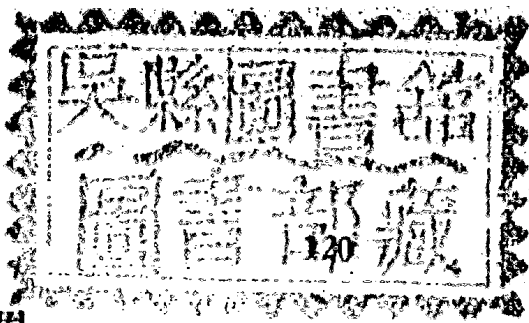 吳縣圖書館
圖書部藏
120